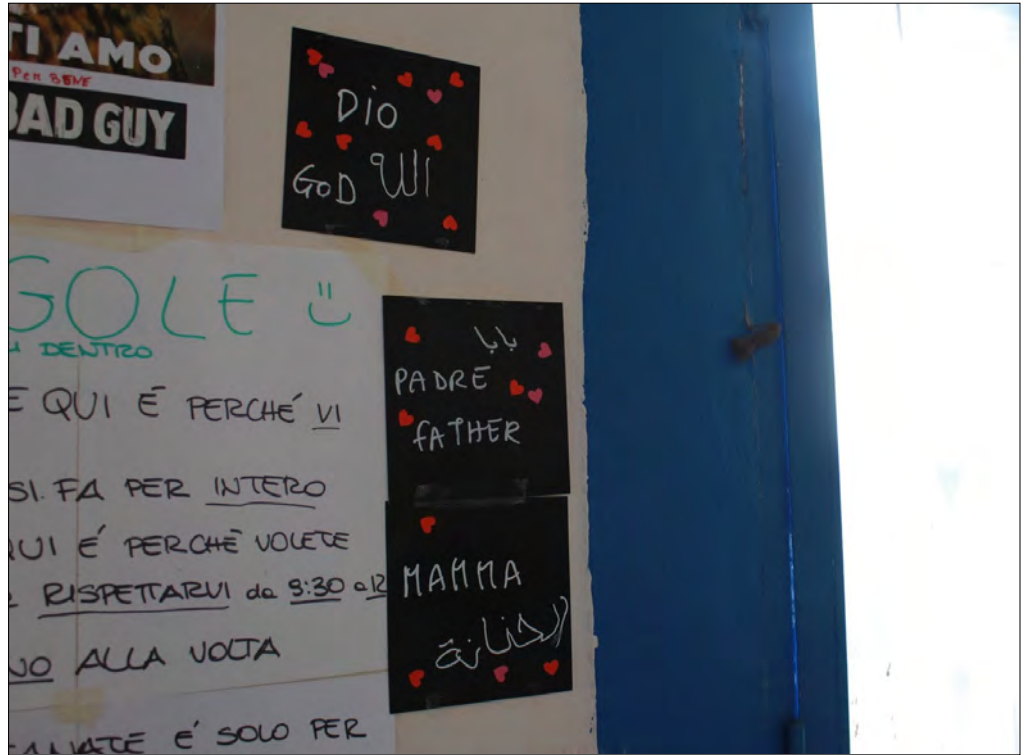 TI AMO
Per BENE
BAD GUY
DIO
GOD الله
GOLE
DENTRO
E QUI É PERCHÉ VI
SI FA PER INTERO
QUI É PERCHÉ VOLETE
RISPETTARVI da 9:30 a 12
NO ALLA VOLTA
É SOLO PER
بابا
PADRE
FATHER
MAMMA
الحنانة